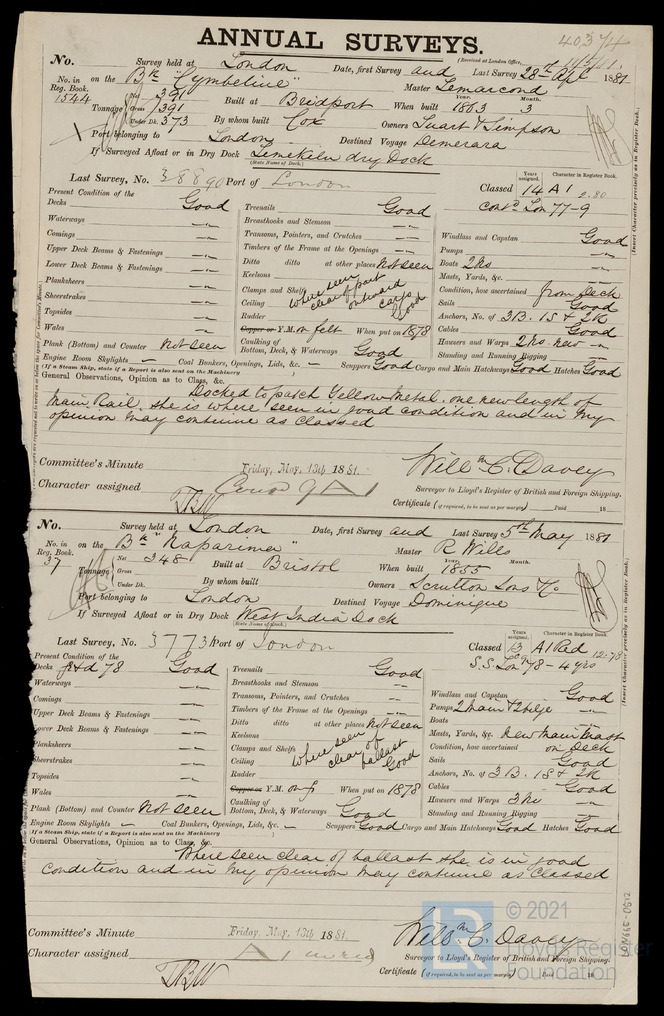 ANNUAL SURVEYS.
40374
(Received at London Office,
No. Survey held at London Date, first Survey and Last Survey 28th Apl 1881
No. in Reg. Book. 1544 on the Bk "Cymbeline" Master
Tonnage Net 391 Gross 391 Under Dk. 373 Built at Bridport When built Year. 1863 Month. 3
By whom built Cox Owners Stuart & Simpson
Port belonging to London Destined Voyage Demerara
If Surveyed Afloat or in Dry Dock Limekiln dry Dock
(State Name of Dock.)
Last Survey, No. 38890 Port of London Classed Years assigned. 14 Character in Register Book. A1 2.80
contd Lon 77-9
Present Condition of the
Decks Good
Waterways "
Comings "
Upper Deck Beams & Fastenings "
Lower Deck Beams & Fastenings "
Planksheers "
Sheerstrakes "
Topsides "
Wales "
Plank (Bottom) and Counter Not seen
Treenails Good
Breasthooks and Stemson "
Transoms, Pointers, and Crutches "
Timbers of the Frame at the Openings "
Ditto ditto at other places Not seen
Keelsons
Clamps and Shelfs
Ceiling
where seen clear of part outward cargo Good
Rudder
Copper or Y.M. on felt When put on 1878
Caulking of Bottom, Deck, & Waterways Good
Windlass and Capstan Good
Pumps "
Boats 2 No "
Masts, Yards, &c. "
Condition, how ascertained from Deck
Sails Good
Anchors, No. of 3B. 1S & 2K
Cables Good
Hawsers and Warps 2 No. new "
Standing and Running Rigging "
Engine Room Skylights — Coal Bunkers, Openings, Lids, &c. — Scuppers Good Cargo and Main Hatchways Good Hatches Good
(If a Steam Ship, state if a Report is also sent on the Machinery
General Observations, Opinion as to Class, &c.
Docked to patch Yellow Metal. one new length of
Main Rail. she is where seen in good condition and in my
opinion may continue as classed
Committee's Minute Friday, May, 13th 1881.
Character assigned Contd 9 A1
TBW
Willm C. Davey
Surveyor to Lloyd's Register of British and Foreign Shipping.
Certificate (if required, to be sent as per margin) Paid 18
(Insert Character precisely as in Register Book.)
No. Survey held at London Date, first Survey and Last Survey 5th May 1881
No. in Reg. Book. 37 on the Bk "Naparima" Master R Wills
Tonnage Net 348 Gross Under Dk. Built at Bristol When built Year. 1855 Month.
By whom built Owners Scrutton Sons & Co
Port belonging to London Destined Voyage Dominique
If Surveyed Afloat or in Dry Dock West India Dock
(State Name of Dock.)
Last Survey, No. 37731 Port of London Classed Years assigned. 13 Character in Register Book. A1 Red 12.78
S.S. Lon 78-4 yrs
Present Condition of the
Decks 78 Good
Waterways "
Comings "
Upper Deck Beams & Fastenings "
Lower Deck Beams & Fastenings "
Planksheers "
Sheerstrakes "
Topsides "
Wales "
Plank (Bottom) and Counter Not seen
Treenails Good
Breasthooks and Stemson "
Transoms, Pointers, and Crutches "
Timbers of the Frame at the Openings "
Ditto ditto at other places Not seen
Keelsons
Clamps and Shelfs
Ceiling
where seen clear of ballast Good
Rudder
Copper or Y.M. on f When put on 1878
Caulking of Bottom, Deck, & Waterways Good
Windlass and Capstan Good
Pumps 2 Main & 2 bilge "
Boats "
Masts, Yards, &c. New Main Mast
Condition, how ascertained on Deck
Sails Good
Anchors, No. of 3B. 1S & 2K
Cables Good
Hawsers and Warps 3 No "
Standing and Running Rigging "
Engine Room Skylights — Coal Bunkers, Openings, Lids, &c. — Scuppers Good Cargo and Main Hatchways Good Hatches Good
(If a Steam Ship, state if a Report is also sent on the Machinery
General Observations, Opinion as to Class, &c.
Where seen clear of ballast she is in good
condition and in my opinion may continue as Classed
Committee's Minute Friday, May, 13th 1881.
Character assigned A1 in red
TBW
Willm C. Davey
Surveyor to Lloyd's Register of British and Foreign Shipping.
Certificate (if required, to be sent as per margin) Paid 18
(Insert Character precisely as in Register Book.)
LON665-0512
© 2021
Lloyd's Register
Foundation